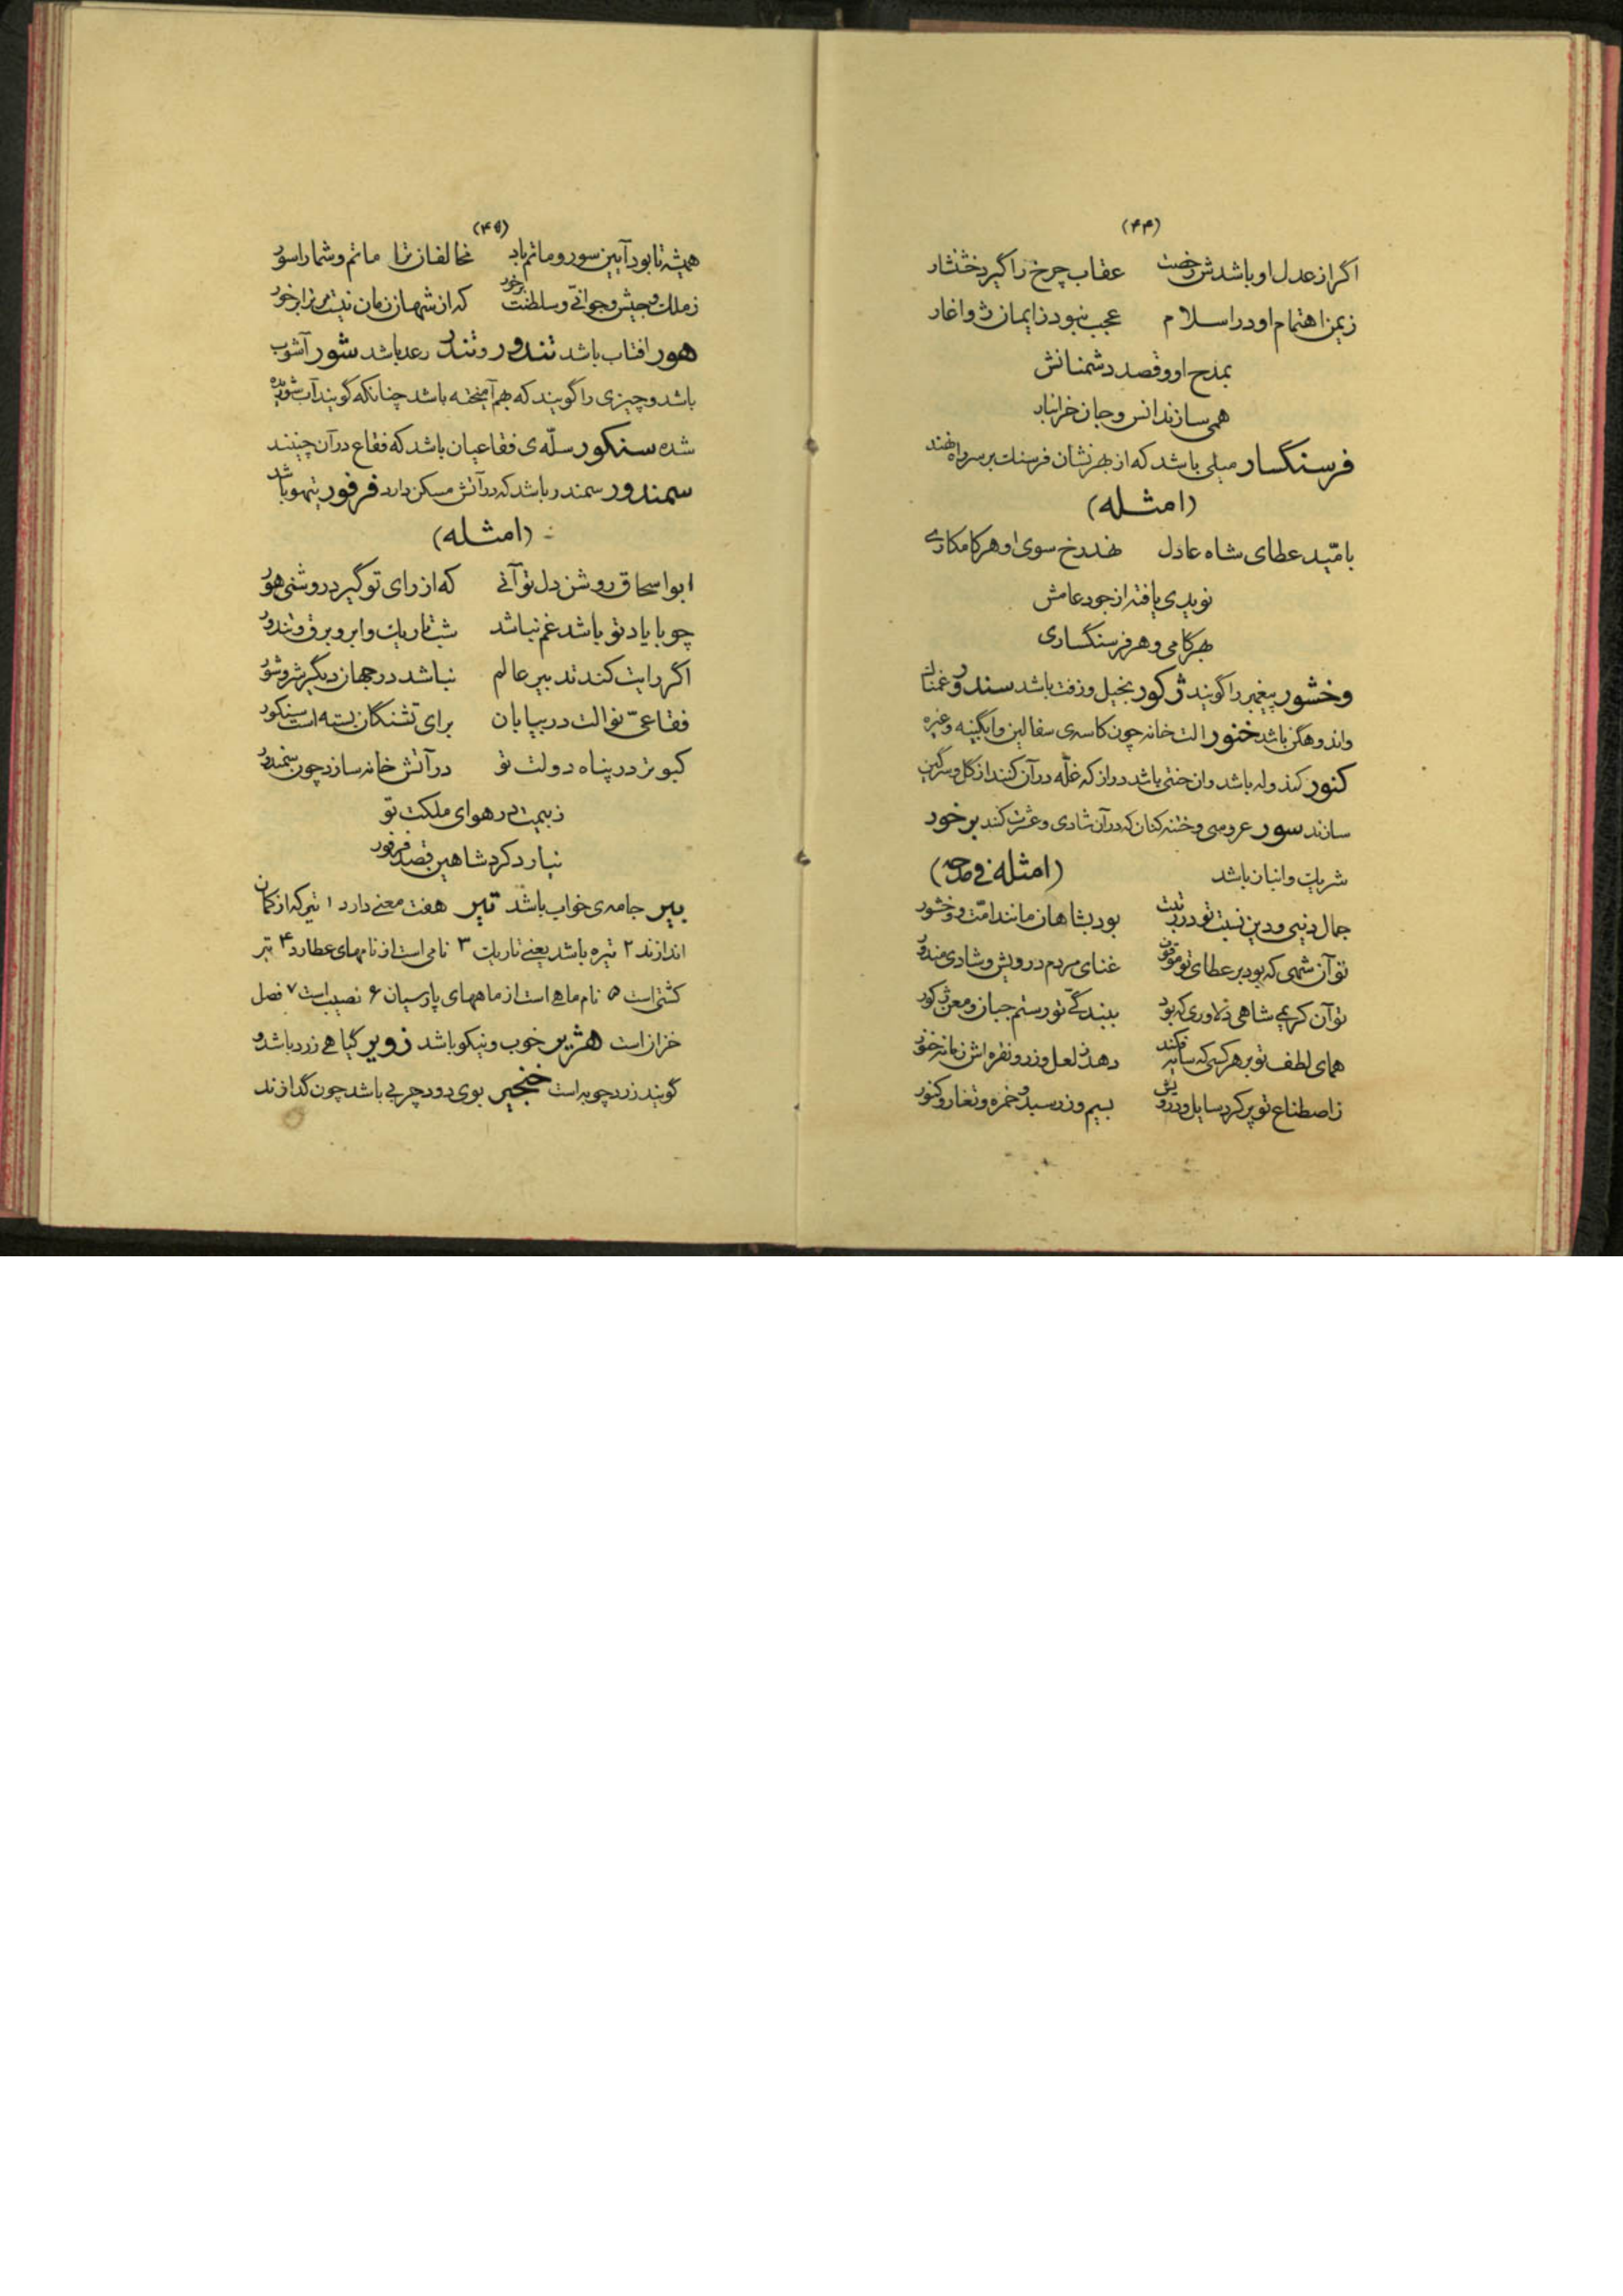 (۴۴)
اگر از عدل او باشدش رخصت عقاب چرخ را گیرد خشنثار
زیمن اهتمام او در اسلام عجب نبود ز ایمان ژواغار
بمدح او و قصد دشمنانش
همی سازند انس و جان خرانبار
فرسنگسار میلی باشد که از بهر نشان فرسنك بر سر راه نهند
(امثله)
بامّید عطای شاه عادل نهد رخ سوی او هر کامکاری
نویدی یافته از جود عامش
بهر کامی و هر فرسنگساری
وخشور پیغمبر را گویند ژکور بخیل و زفت باشد سندور غمناك
واندوهگن باشد خنور الت خانه چون کاسه‌ی سفالین وابگینه وغیره
کنور کندوله باشد وان خنبی باشد دراز که غلّه در آن کنند از کل و سرکین
سازند سور عروسی و ختنه کنان که در آن شادی و عشرت کنند برخور
شریك وانبان باشد (امثله فی مدحه)
جمال دنیی و دین نسبت تو در رتبت بود بشاهان مانند امّت و وخشور
تو آن شهی که بود بر عطای تو موقوف غنای مردم درویش و شادی سندور
تو آن کریمی شاهی دلاوری که بود ببندگیّ تو رستم جبان و معن ژکور
همای لطف تو بر هر کسی که سایه فکند دهد ز لعل و زر و نقره اش زمانه خنور
ز اصطناع تو پر کرد سایل و درویش بسیم و زر سبد و خمره و تغار و کنور
(۴۵)
همیشه تا بود آیین سور و ماتم باد مخالفان ترا ماتم و شما را سور
ز ملك و جیش و جوانیّ و سلطنت برخور که از شهان زمان نیست مر ترا برخور
هور افتاب باشد تندور و تندر رعد باشد شور آشوب
باشد و چیزی را گویند که بهم آمیخته باشد چنانکه گویند آب شوریده
شده سنکور سلّه‌ی فقاعیان باشد که فقاع در آن چینند
سمندور سمندر باشد که در آتش مسکن دارد فرفور تیهو باشد
(امثله)
ابو اسحاق روشن دل تو آنی که از رای تو گیرد روشنی هور
چو با یاد تو باشد غم نباشد شب تاریك و ابر و برق و تندور
اگر رایت کند تدبیر عالم نباشد در جهان دیگر شر و شور
فقاعیّ نوالت در بیابان برای تشنگان بسته است سنکور
کبوتر در پناه دولت تو در آتش خانه سازد چون سمندور
ز بیمت در هوای ملکت تو
نیارد کرد شاهین قصد فرفور
بیر جامه‌ی خواب باشد تیر هفت معنی دارد ۱ تیر که از کمان
اندازند ۲ تیره باشد یعنی تاریك ۳ نامی است از نامهای عطارد ۴ تیر
کشتی است ۵ نام ماهی است از ماههای پارسیان ۶ نصیب است ۷ فصل
خزان است هژیر خوب و نیکو باشد زویر گیاهی زرد باشد و
گویند زردچوبه است خنجیر بوی دود چربی باشد چون گدازند